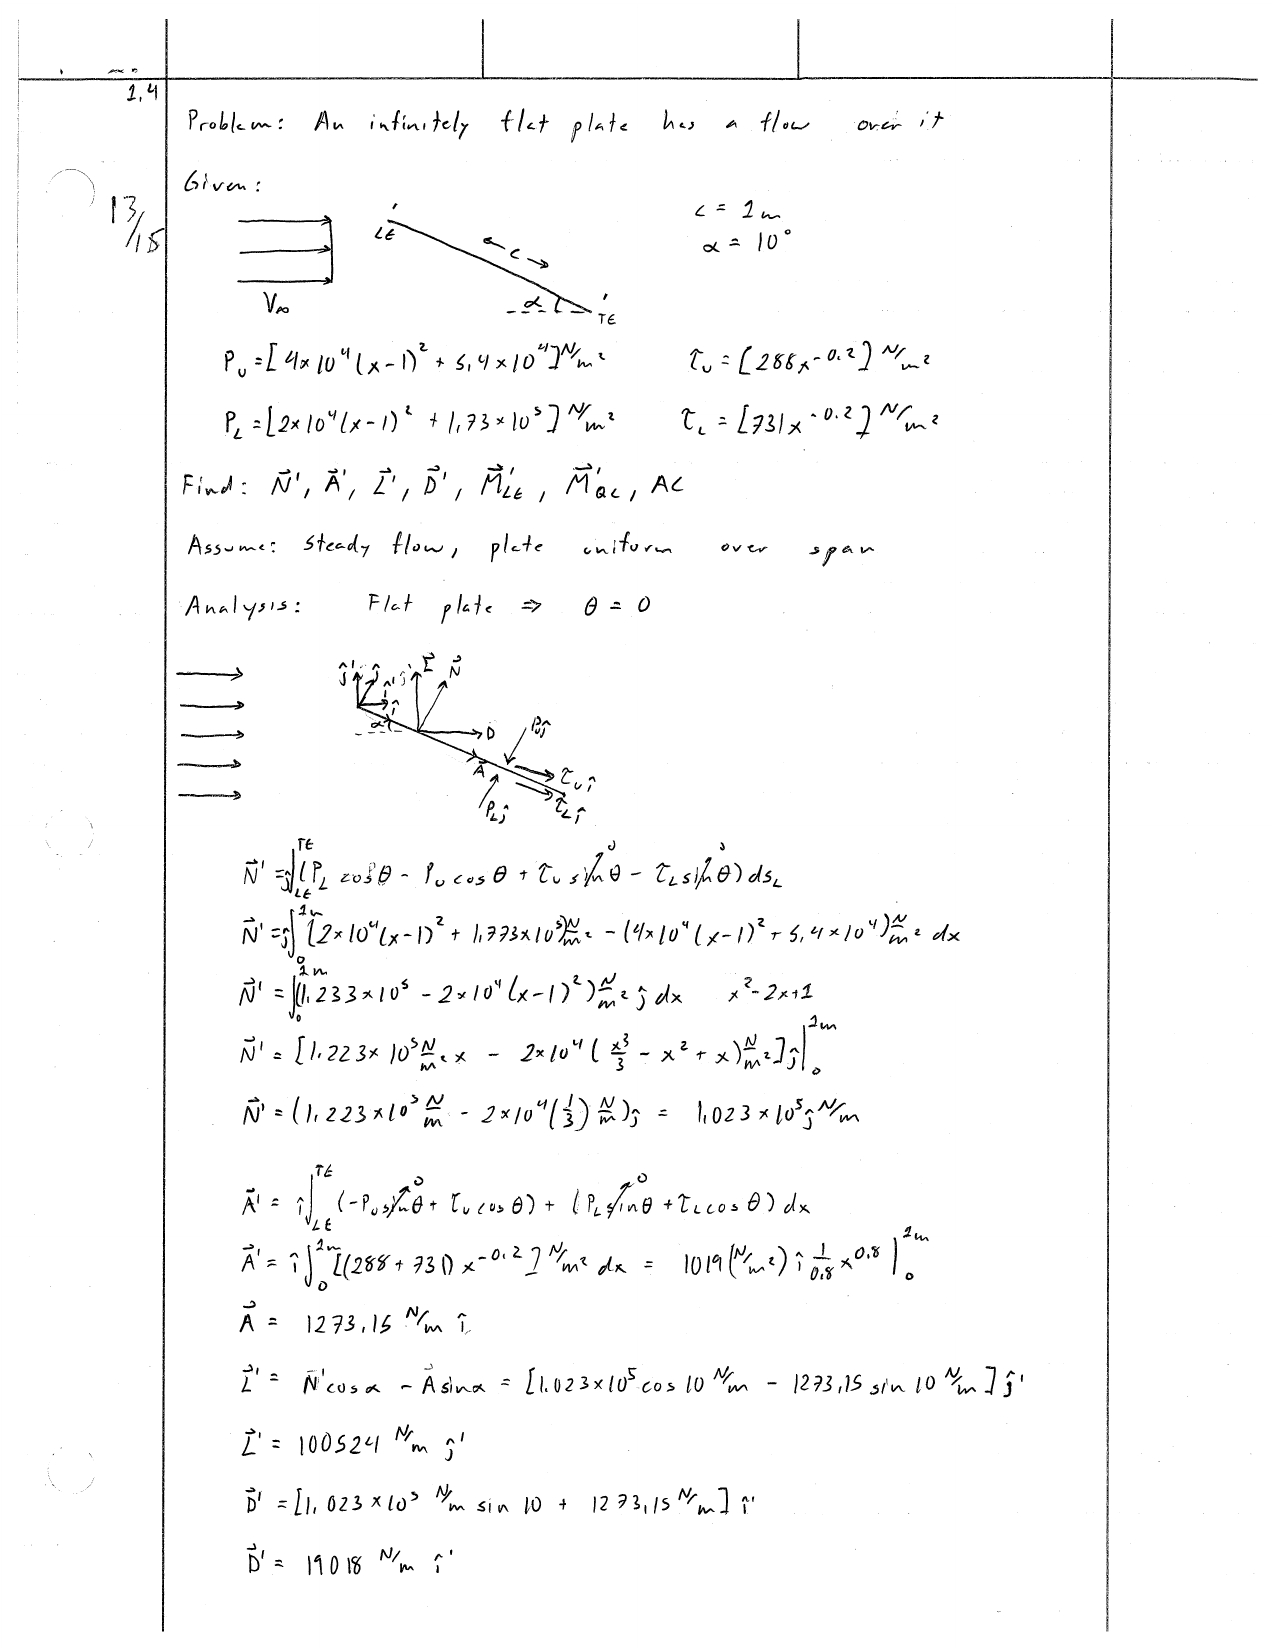 1.4
Problem: An infinitely flat plate has a flow over it
Given:
13/15
c = 1m
α = 10°
LE
c
α
TE
V∞
P_U = [4×10⁴(x-1)² + 5.4×10⁴] N/m²
τ_U = [288x^-0.2] N/m²
P_L = [2×10⁴(x-1)² + 1.73×10⁵] N/m²
τ_L = [731x^-0.2] N/m²
Find: N⃗', A⃗', L⃗', D⃗', M⃗'_LE, M⃗'_QC, AC
Assume: steady flow, plate uniform over span
Analysis: Flat plate ⇒ θ = 0
ĵ' ĵ î' î ĵ' L⃗ N⃗
α D P_U ĵ
A⃗ τ_U î
P_L ĵ τ_L î
N⃗' = ĵ∫_LE^TE (P_L cosθ - P_U cosθ + τ_U sinθ⁰ - τ_L sinθ⁰) ds_L
N⃗' = ĵ∫_0^1m [2×10⁴(x-1)² + 1.773×10⁵) N/m² - (4×10⁴(x-1)² + 5.4×10⁴) N/m² dx
N⃗' = ∫_0^1m (1.233×10⁵ - 2×10⁴(x-1)²) N/m² ĵ dx x²-2x+1
N⃗' = [1.223×10⁵ N/m² x - 2×10⁴(x³/3 - x² + x) N/m²] ĵ |_0^1m
N⃗' = (1.223×10⁵ N/m - 2×10⁴(1/3) N/m) ĵ = 1.023×10⁵ ĵ N/m
A⃗' = î∫_LE^TE (-P_U sinθ⁰ + τ_U cosθ) + (P_L sinθ⁰ + τ_L cosθ) dx
A⃗' = î∫_0^1m [(288 + 731) x^-0.2] N/m² dx = 1019 (N/m²) î 1/0.8 x^0.8 |_0^1m
A⃗ = 1273.15 N/m î
L⃗' = N⃗' cosα - A⃗ sinα = [1.023×10⁵ cos 10 N/m - 1273.15 sin 10 N/m] ĵ'
L⃗' = 100524 N/m ĵ'
D⃗' = [1.023×10⁵ N/m sin 10 + 1273.15 N/m] î'
D⃗' = 19018 N/m î'